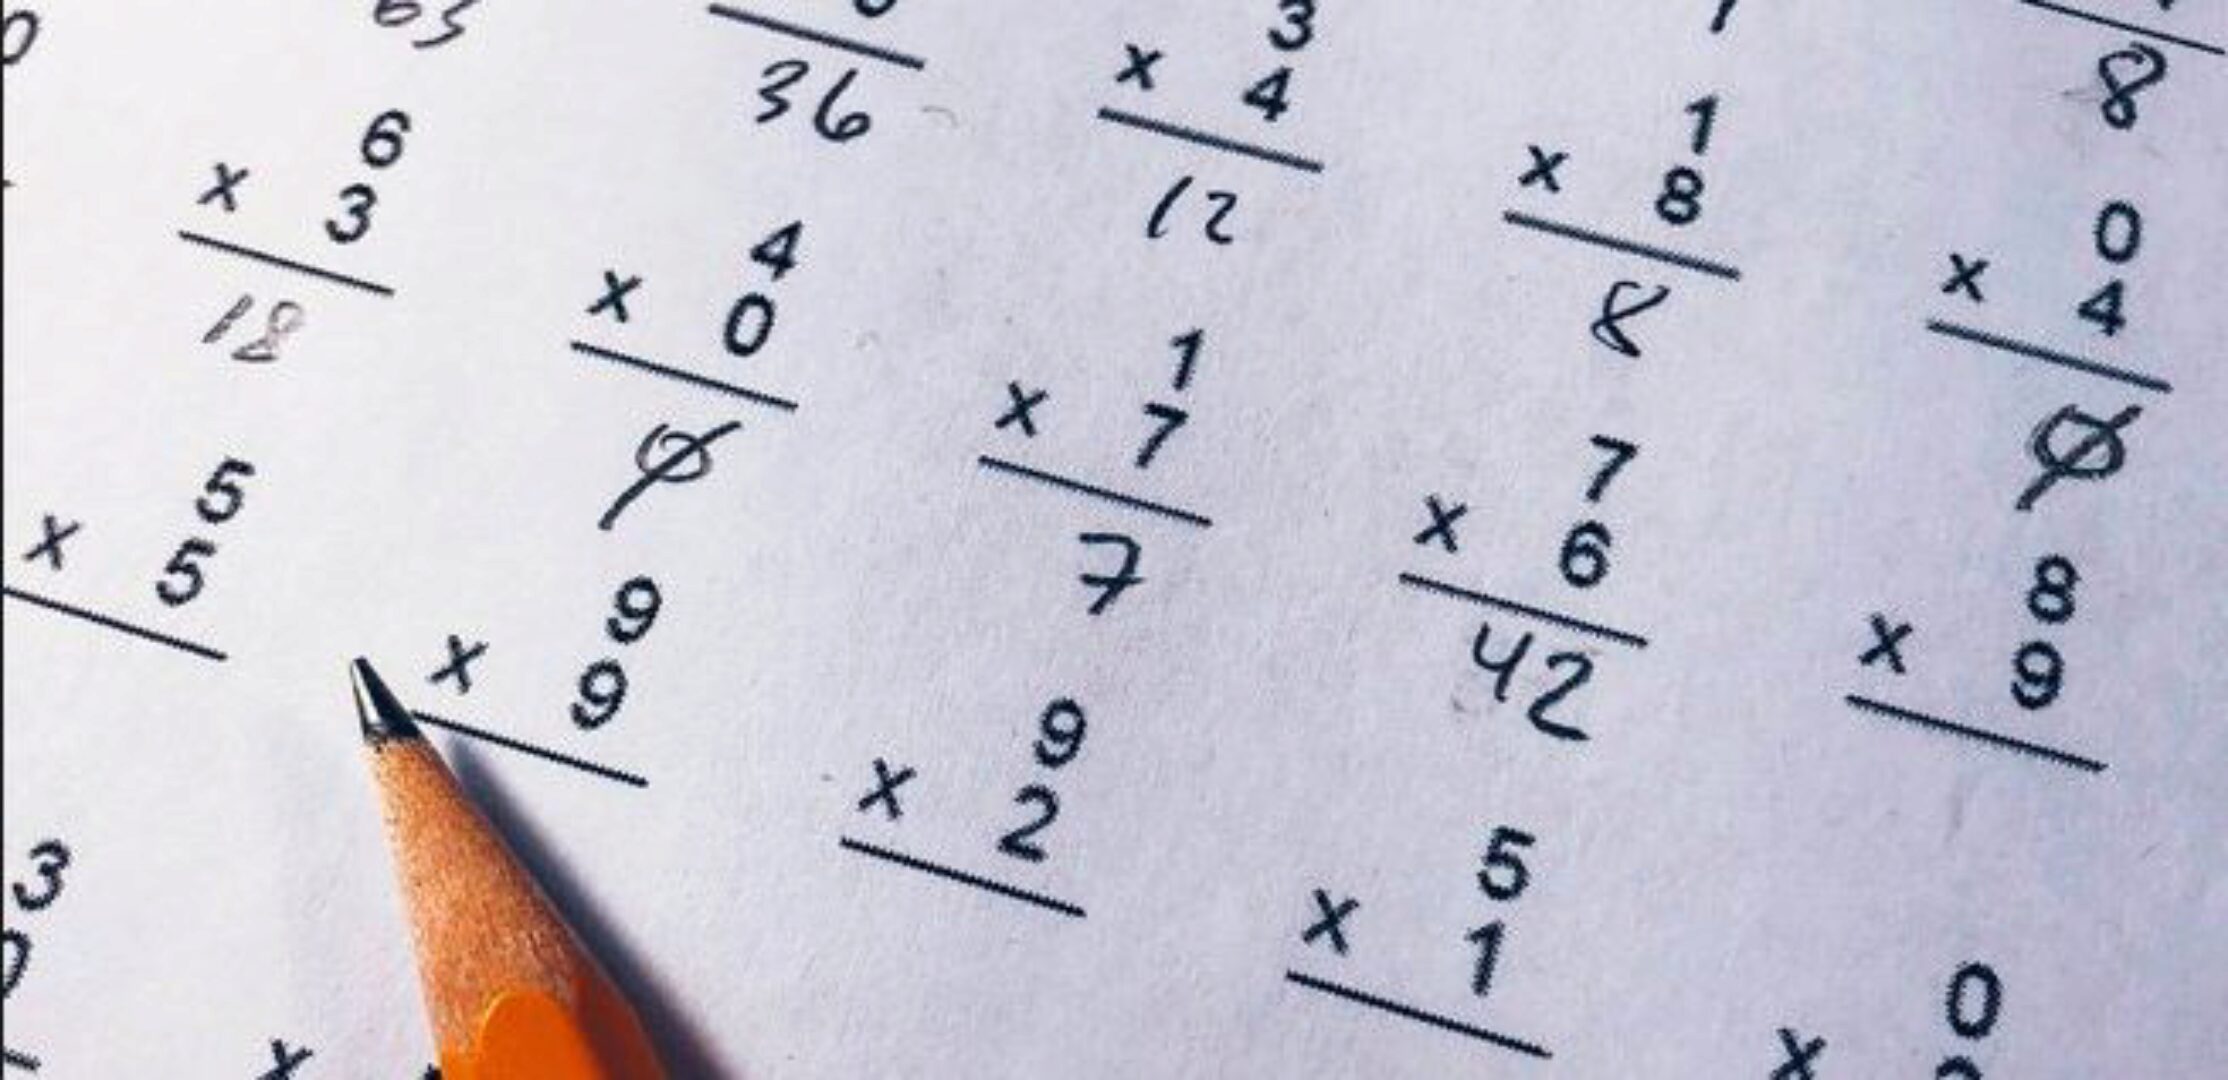 63
36
3
x 4
12
1
x 8
8
8
6
x 3
18
4
x 0
0
1
x 7
7
7
x 6
42
0
x 4
0
5
x 5
9
x 9
9
x 2
5
x 1
8
x 9
3
0
x
0
x